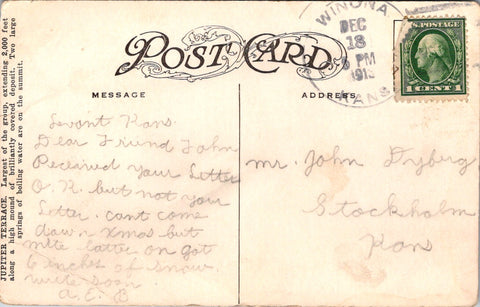 JUPITER TERRACE. Largest of the group, extending 2,000 feet
along a high mound of brilliantly covered deposit. Two large
springs of boiling water are on the summit.
POST CARD
MESSAGE
ADDRESS
WINONA
DEC
18
PM
KANS.
U.S. POSTAGE
1 CENT 1
Levant Kans.
Dear Friend John
Received your Letter
O.K. but not your
Letter. cant come
down Xmas but
mite latter on got
6 inches of snow.
write soon
A.E.B
Mr. John Dyberg
Stockholm
Kans